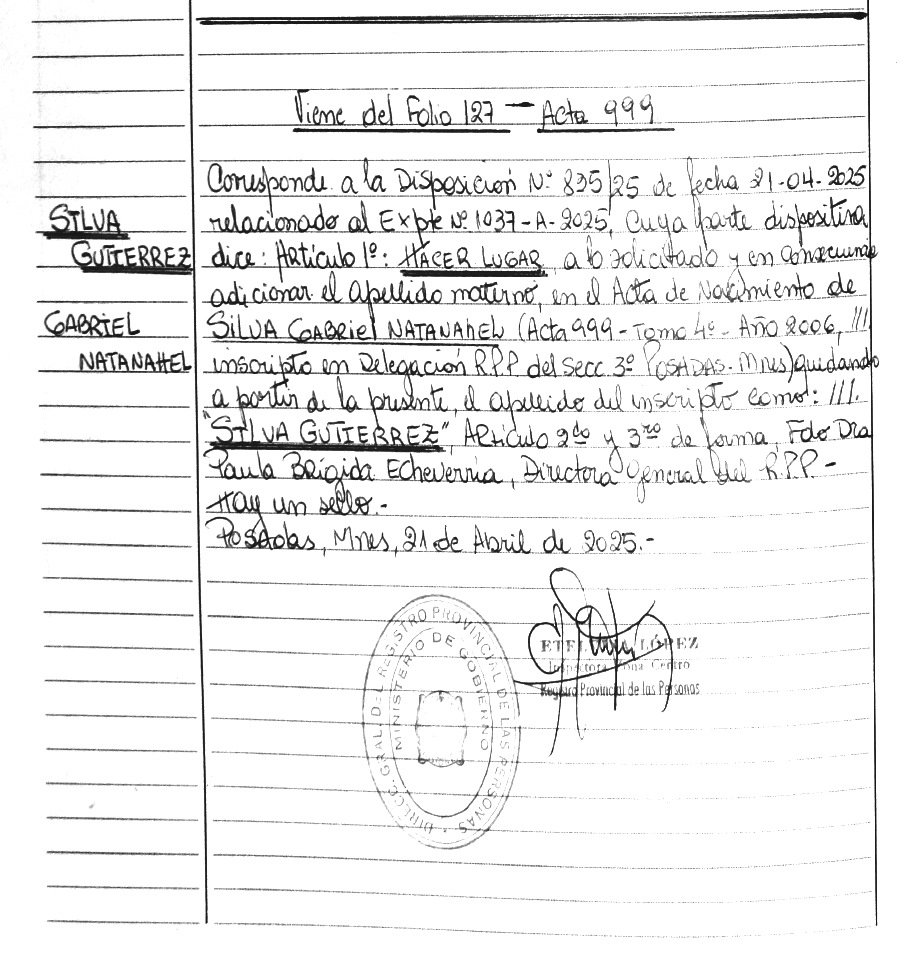 Viene del Folio 127 — Acta 999
Corresponde a la Disposición Nº 835/25 de fecha 21-04-2025
SILVA
relacionado al Expte Nº 1037-A-2025, cuya parte dispositiva
GUTIERREZ
dice: Artículo 1º: HACER LUGAR, a lo solicitado y en consecuencia
adicionar el apellido materno, en el Acta de Nacimiento de
GABRIEL
SILVA GABRIEL NATANAHEL (Acta 999 - Tomo 4º - Año 2006, ///
NATANAHEL
inscripto en Delegación R.P.P del Secc. 3º POSADAS. Mnes) quedando
a partir de la presente, el apellido del inscripto como: ///.
"SILVA GUTIERREZ", Artículo 2do y 3ro de forma, Fdo Dra
Paula Brigida Echeverria, Directora General del R.P.P. -
Hay un sello.-
Posadas, Mnes, 21 de Abril de 2025.-
LÓPEZ
Inspectora Zona Centro
Registro Provincial de las Personas
DIRECC. GRAL. DEL REGISTRO PROVINCIAL DE LAS PERSONAS
MINISTERIO DE GOBIERNO